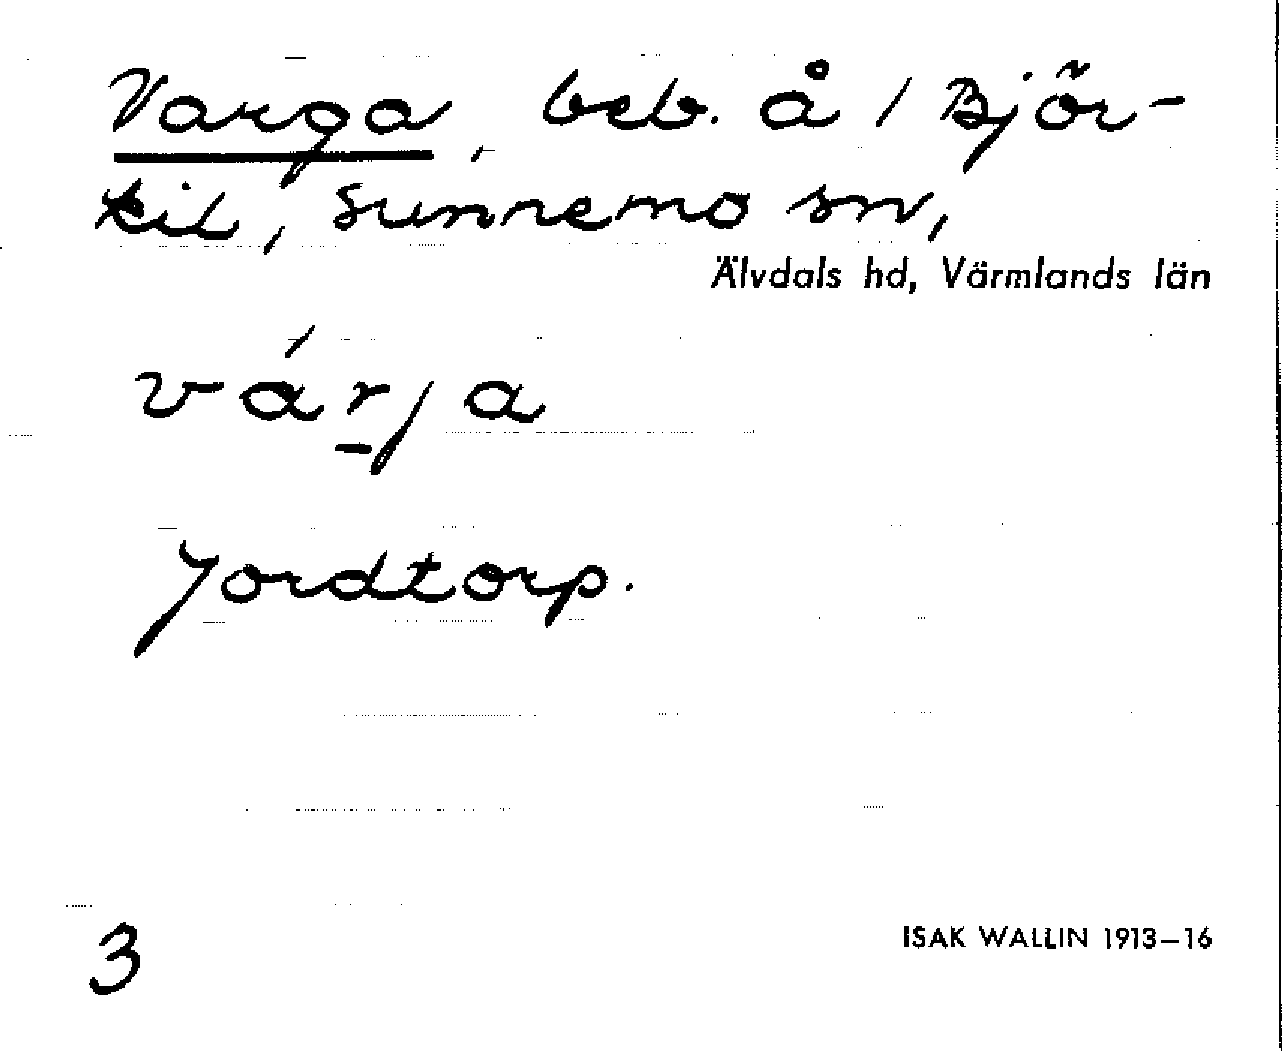 Varga, beb. å 1 Björ-
kil, Sunnemo sn,
Älvdals hd, Värmlands län
várja
Jordtorp.
3
ISAK WALLIN 1913–16